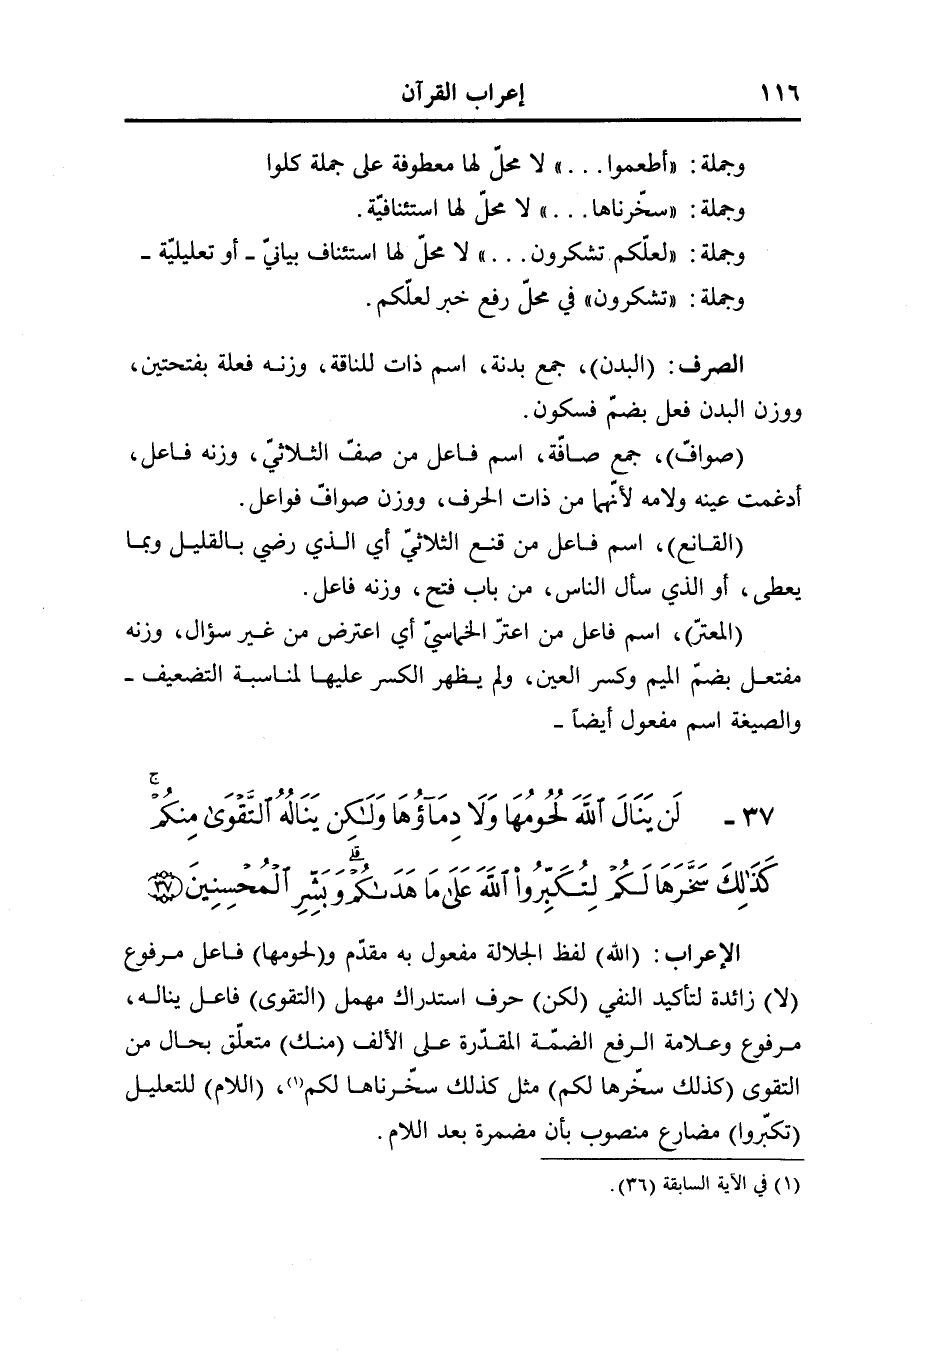 ١١٦ إعراب القرآن
وجملة: «أطعموا...» لا محلّ لها معطوفة على جملة كلوا
وجملة: «سخّرناها...» لا محلّ لها استئنافيّة.
وجملة: «لعلّكم تشكرون...» لا محلّ لها استئناف بيانيّ ـ أو تعليليّة ـ
وجملة: «تشكرون» في محلّ رفع خبر لعلّكم.
الصرف: (البدن)، جمع بدنة، اسم ذات للناقة، وزنه فعلة بفتحتين،
ووزن البدن فعل بضمّ فسكون.
(صوافّ)، جمع صافّة، اسم فاعل من صفّ الثلاثيّ، وزنه فاعل،
أدغمت عينه ولامه لأنّها من ذات الحرف، ووزن صوافّ فواعل.
(القانع)، اسم فاعل من قنع الثلاثيّ أي الذي رضي بالقليل وبما
يعطى، أو الذي سأل الناس، من باب فتح، وزنه فاعل.
(المعترّ)، اسم فاعل من اعترّ الخماسيّ أي اعترض من غير سؤال، وزنه
مفتعل بضمّ الميم وكسر العين، ولم يظهر الكسر عليها لمناسبة التضعيف ـ
والصيغة اسم مفعول أيضاً ـ
٣٧ ـ لَن يَنَالَ ٱللَّهَ لُحُومُهَا وَلَا دِمَآؤُهَا وَلَـٰكِن يَنَالُهُ ٱلتَّقْوَىٰ مِنكُمْ ۚ
كَذَٰلِكَ سَخَّرَهَا لَكُمْ لِتُكَبِّرُوا۟ ٱللَّهَ عَلَىٰ مَا هَدَىٰكُمْ ۗ وَبَشِّرِ ٱلْمُحْسِنِينَ ﴿٣٧﴾
الإعراب: (الله) لفظ الجلالة مفعول به مقدّم و(لحومها) فاعل مرفوع
(لا) زائدة لتأكيد النفي (لكن) حرف استدراك مهمل (التقوى) فاعل يناله،
مرفوع وعلامة الرفع الضمّة المقدّرة على الألف (منك) متعلّق بحال من
التقوى (كذلك سخّرها لكم) مثل كذلك سخّرناها لكم(١)، (اللام) للتعليل
(تكبّروا) مضارع منصوب بأن مضمرة بعد اللام.
(١) في الآية السابقة (٣٦).